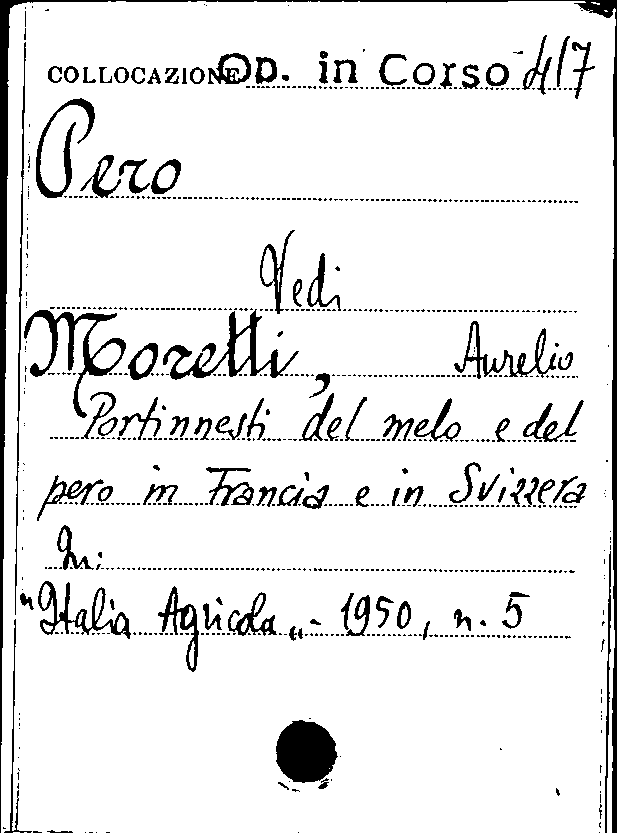 COLLOCAZIONE OP. in Corso - 4/7
Pero
Vedi
Moretti, Aurelio
Portinnesti del melo e del
pero in Francia e in Svizzera
In:
"Italia Agricola„ - 1950, n. 5